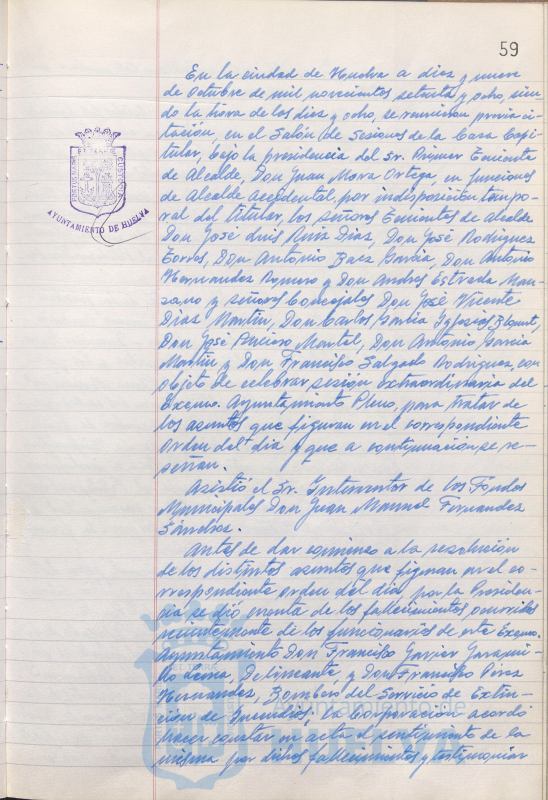 59
En la ciudad de Huelva a diez y nueve
de octubre de mil novecientos setenta y ocho, sien-
do la hora de las diez y ocho, se reunieron previa ci-
tación, en el Salón de Sesiones de la Casa Capi-
tular, bajo la presidencia del Sr. Primer Teniente
de Alcalde, Don Juan Mora Ortega, en funciones
de Alcalde Accidental, por indisposición tempo-
ral del titular, los señores Tenientes de Alcalde
Don José Luis Ruiz Díaz, Don José Rodríguez
Torres, Don Antonio Baez García, Don Antonio
Hernandez Romero y Don Andres Estrada Man-
zano y señores Concejales Don José Vicente
Diaz Martín, Don Carlos Iglesias
Don José Montal, Don Antonio García
Martín y Don Francisco Salgado Rodríguez, con
objeto de celebrar sesión extraordinaria del
Excmo. Ayuntamiento Pleno, para tratar de
los asuntos que figuran en el correspondiente
orden del día y que a continuación se re-
señan.
Asistió el Sr. Interventor de los Fondos
Municipales Don Juan Manuel Fernandez
Sánchez.
Antes de dar comienzo a la resolución
de los distintos asuntos que figuran en el co-
rrespondiente orden del día, por la Presiden-
cia se dió cuenta de los fallecimientos ocurridos
recientemente de los funcionarios de este Excmo.
Ayuntamiento Don Francisco Javier
Delineante, y Don Francisco Pérez
Hernandez, Bombero del Servicio de Extin-
ción de Incendios; la Corporación acordó
hacer constar en acta el sentimiento de la
misma por dichos fallecimientos y testimoniar
AYUNTAMIENTO DE HUELVA
Ayuntamiento de
HUELVA